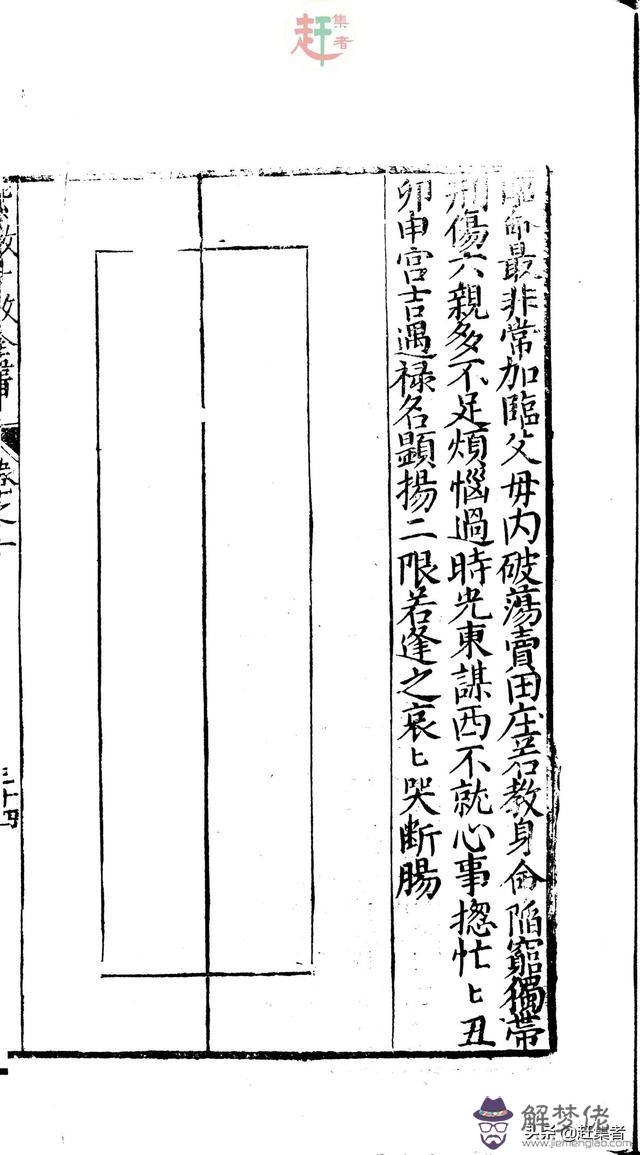 赶集者
最非常加臨父母内破蕩賣田庄若教身命陷窮獨帶
刑傷六親多不足煩惱過時光東謀西不就心事揔忙〻丑
卯申宮吉遇祿名顯揚二限若逢之哀〻哭断腸
卷之一
三十四
解梦佬
www.jiemenglao.com
头条@赶集者